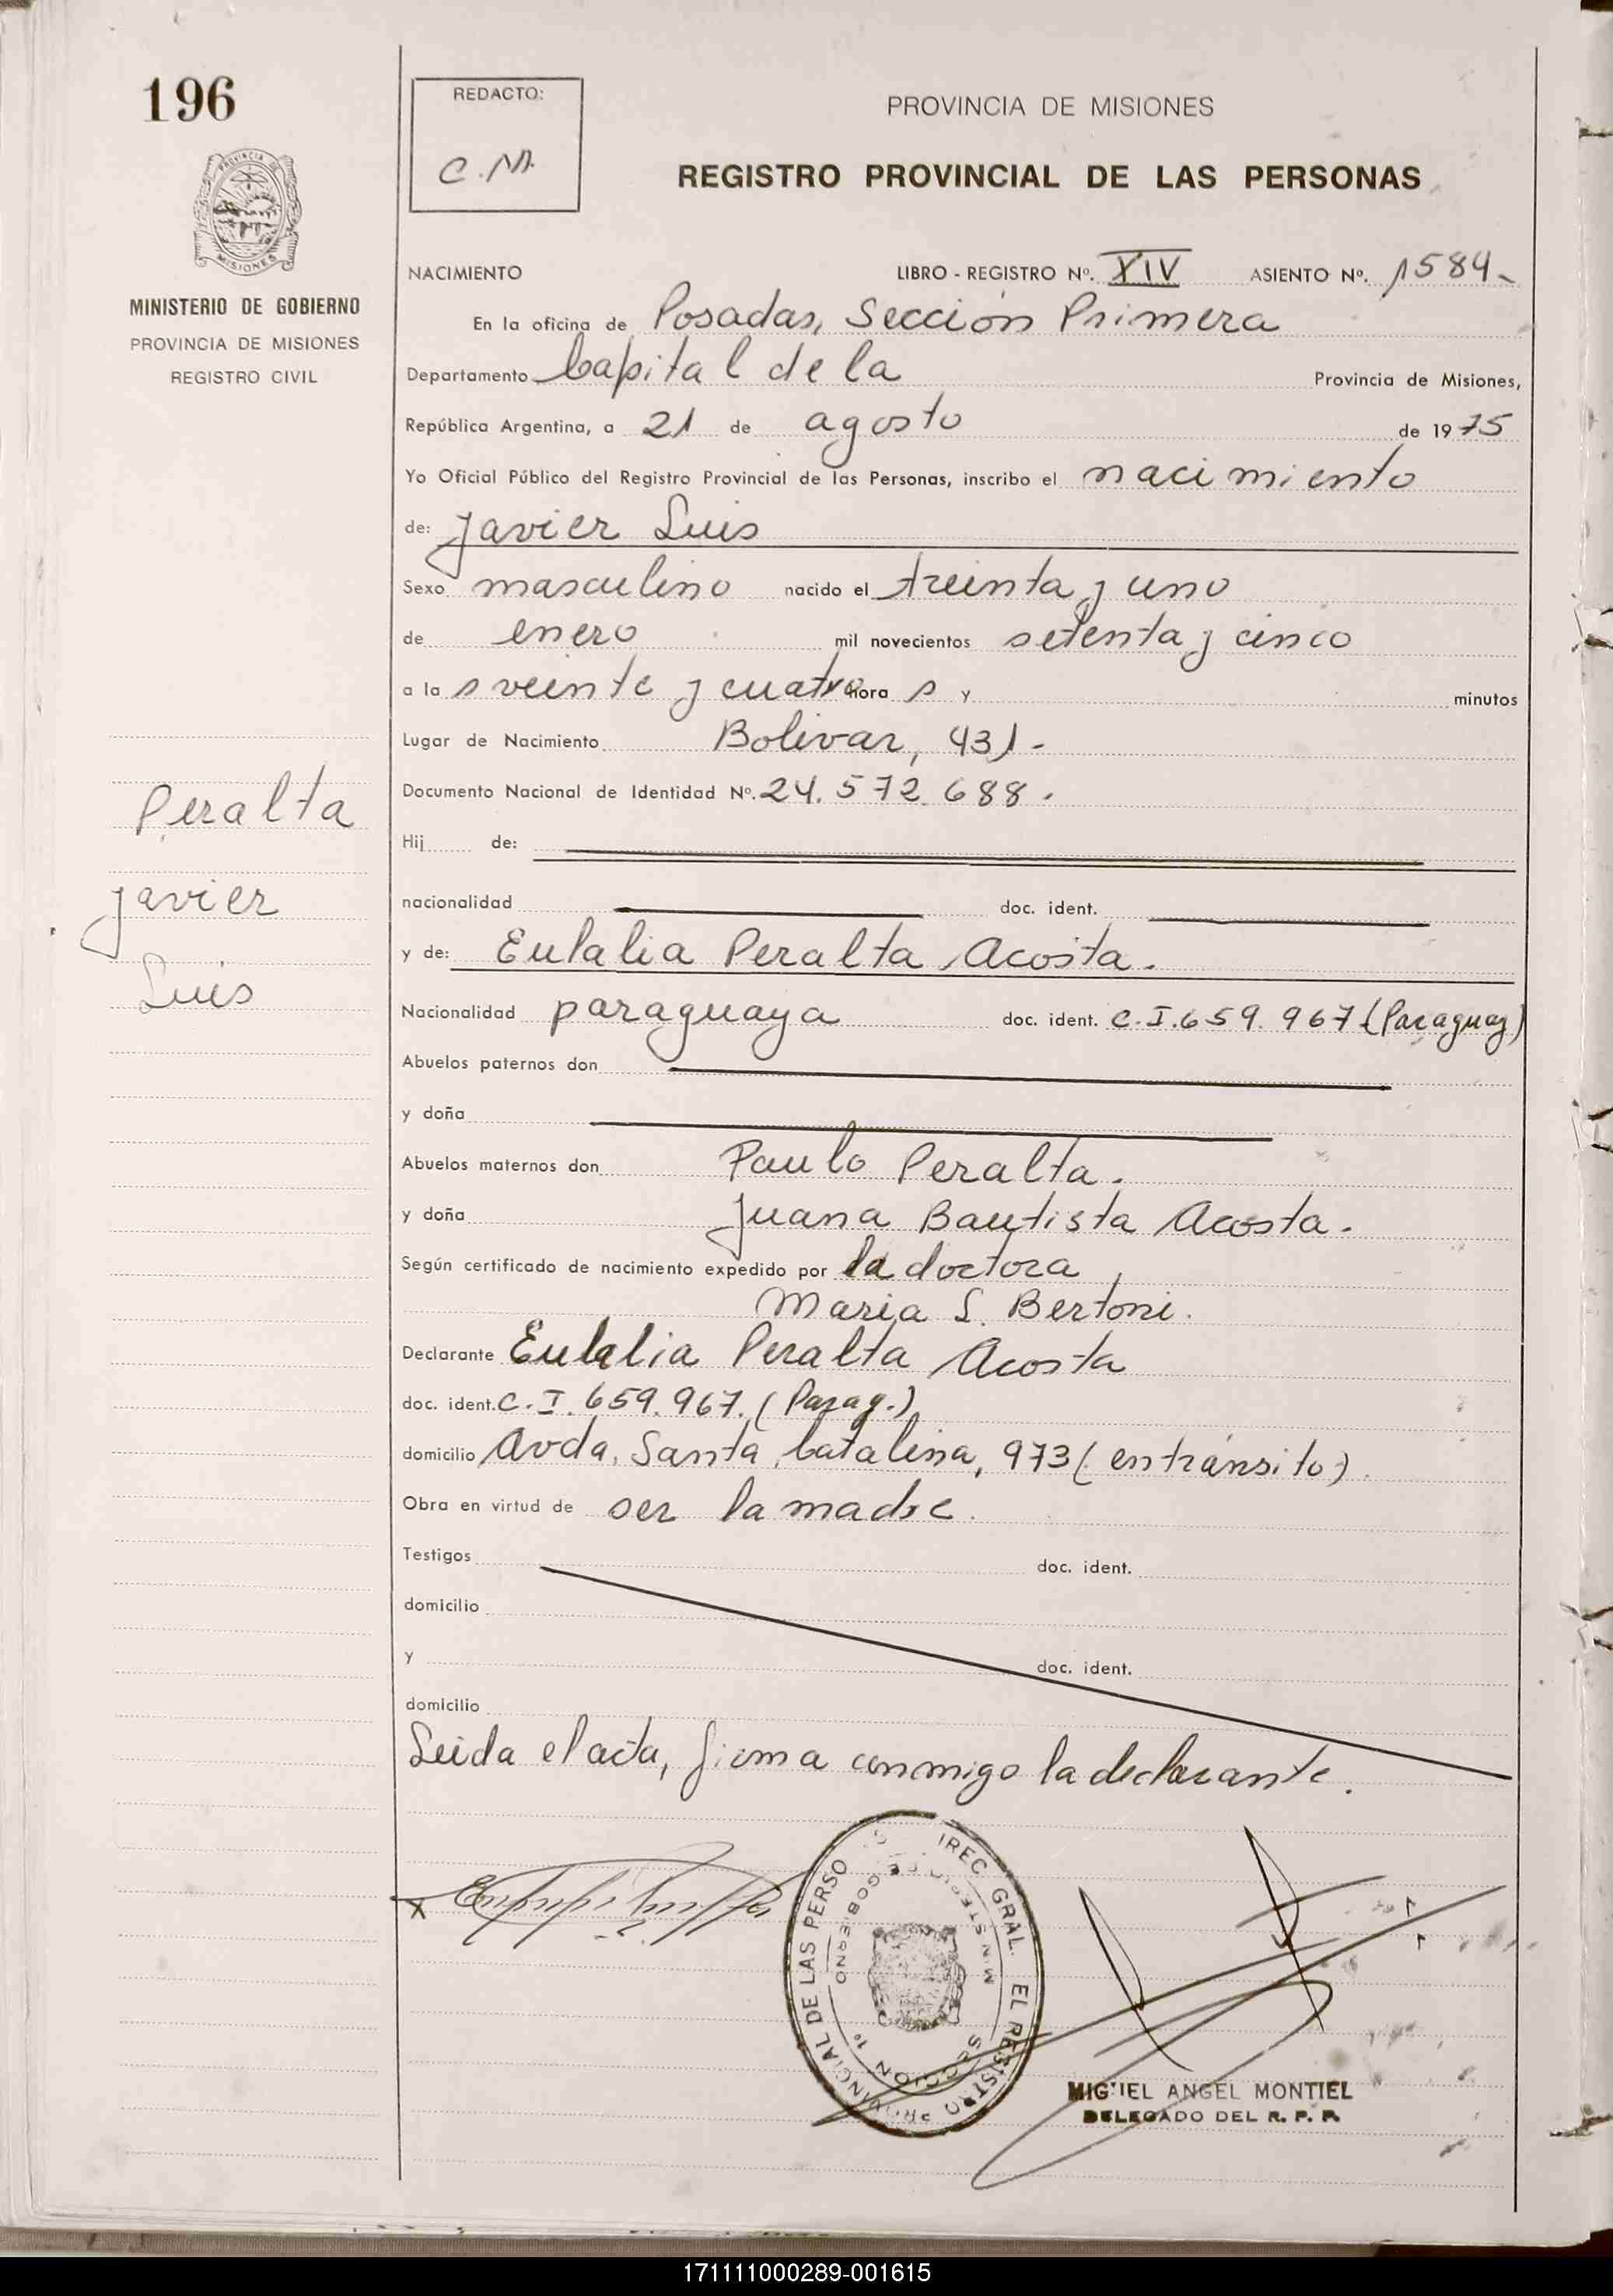 196
REDACTO:
C.M.
PROVINCIA DE MISIONES
REGISTRO PROVINCIAL DE LAS PERSONAS
PROVINCIA DE
MISIONES
MINISTERIO DE GOBIERNO
PROVINCIA DE MISIONES
REGISTRO CIVIL
NACIMIENTO LIBRO - REGISTRO Nº. XIV ASIENTO Nº. 1584-
En la oficina de Posadas, Sección Primera
Departamento Capital de la Provincia de Misiones,
República Argentina, a 21 de agosto de 1975
Yo Oficial Público del Registro Provincial de las Personas, inscribo el nacimiento
de: Javier Luis
Sexo masculino nacido el treinta y uno
de enero mil novecientos setenta y cinco
a la s veinte y cuatro hora s y minutos
Lugar de Nacimiento Bolivar, 431-
Documento Nacional de Identidad Nº. 24.572.688.
Hij de:
nacionalidad doc. ident.
y de: Eulalia Peralta Acosta.
Nacionalidad paraguaya doc. ident. C.I.659.967 (Paraguay)
Abuelos paternos don
y doña
Abuelos maternos don Paulo Peralta.
y doña Juana Bautista Acosta.
Según certificado de nacimiento expedido por la doctora
Maria S. Bertoni.
Declarante Eulalia Peralta Acosta
doc. ident. C.I.659.967. (Parag.)
domicilio Avda. Santa Catalina, 973 (en tránsito).
Obra en virtud de ser la madre.
Testigos doc. ident.
domicilio
y doc. ident.
domicilio
Leida el acta, firma conmigo la declarante.
Peralta
Javier
Luis
x
IREC. GRAL. EL REGISTRO PROVINCIAL DE LAS PERSO
MINISTERIO GOBIERNO
SECCION 1º
MIGUEL ANGEL MONTIEL
DELEGADO DEL R. P. P.
171111000289-001615